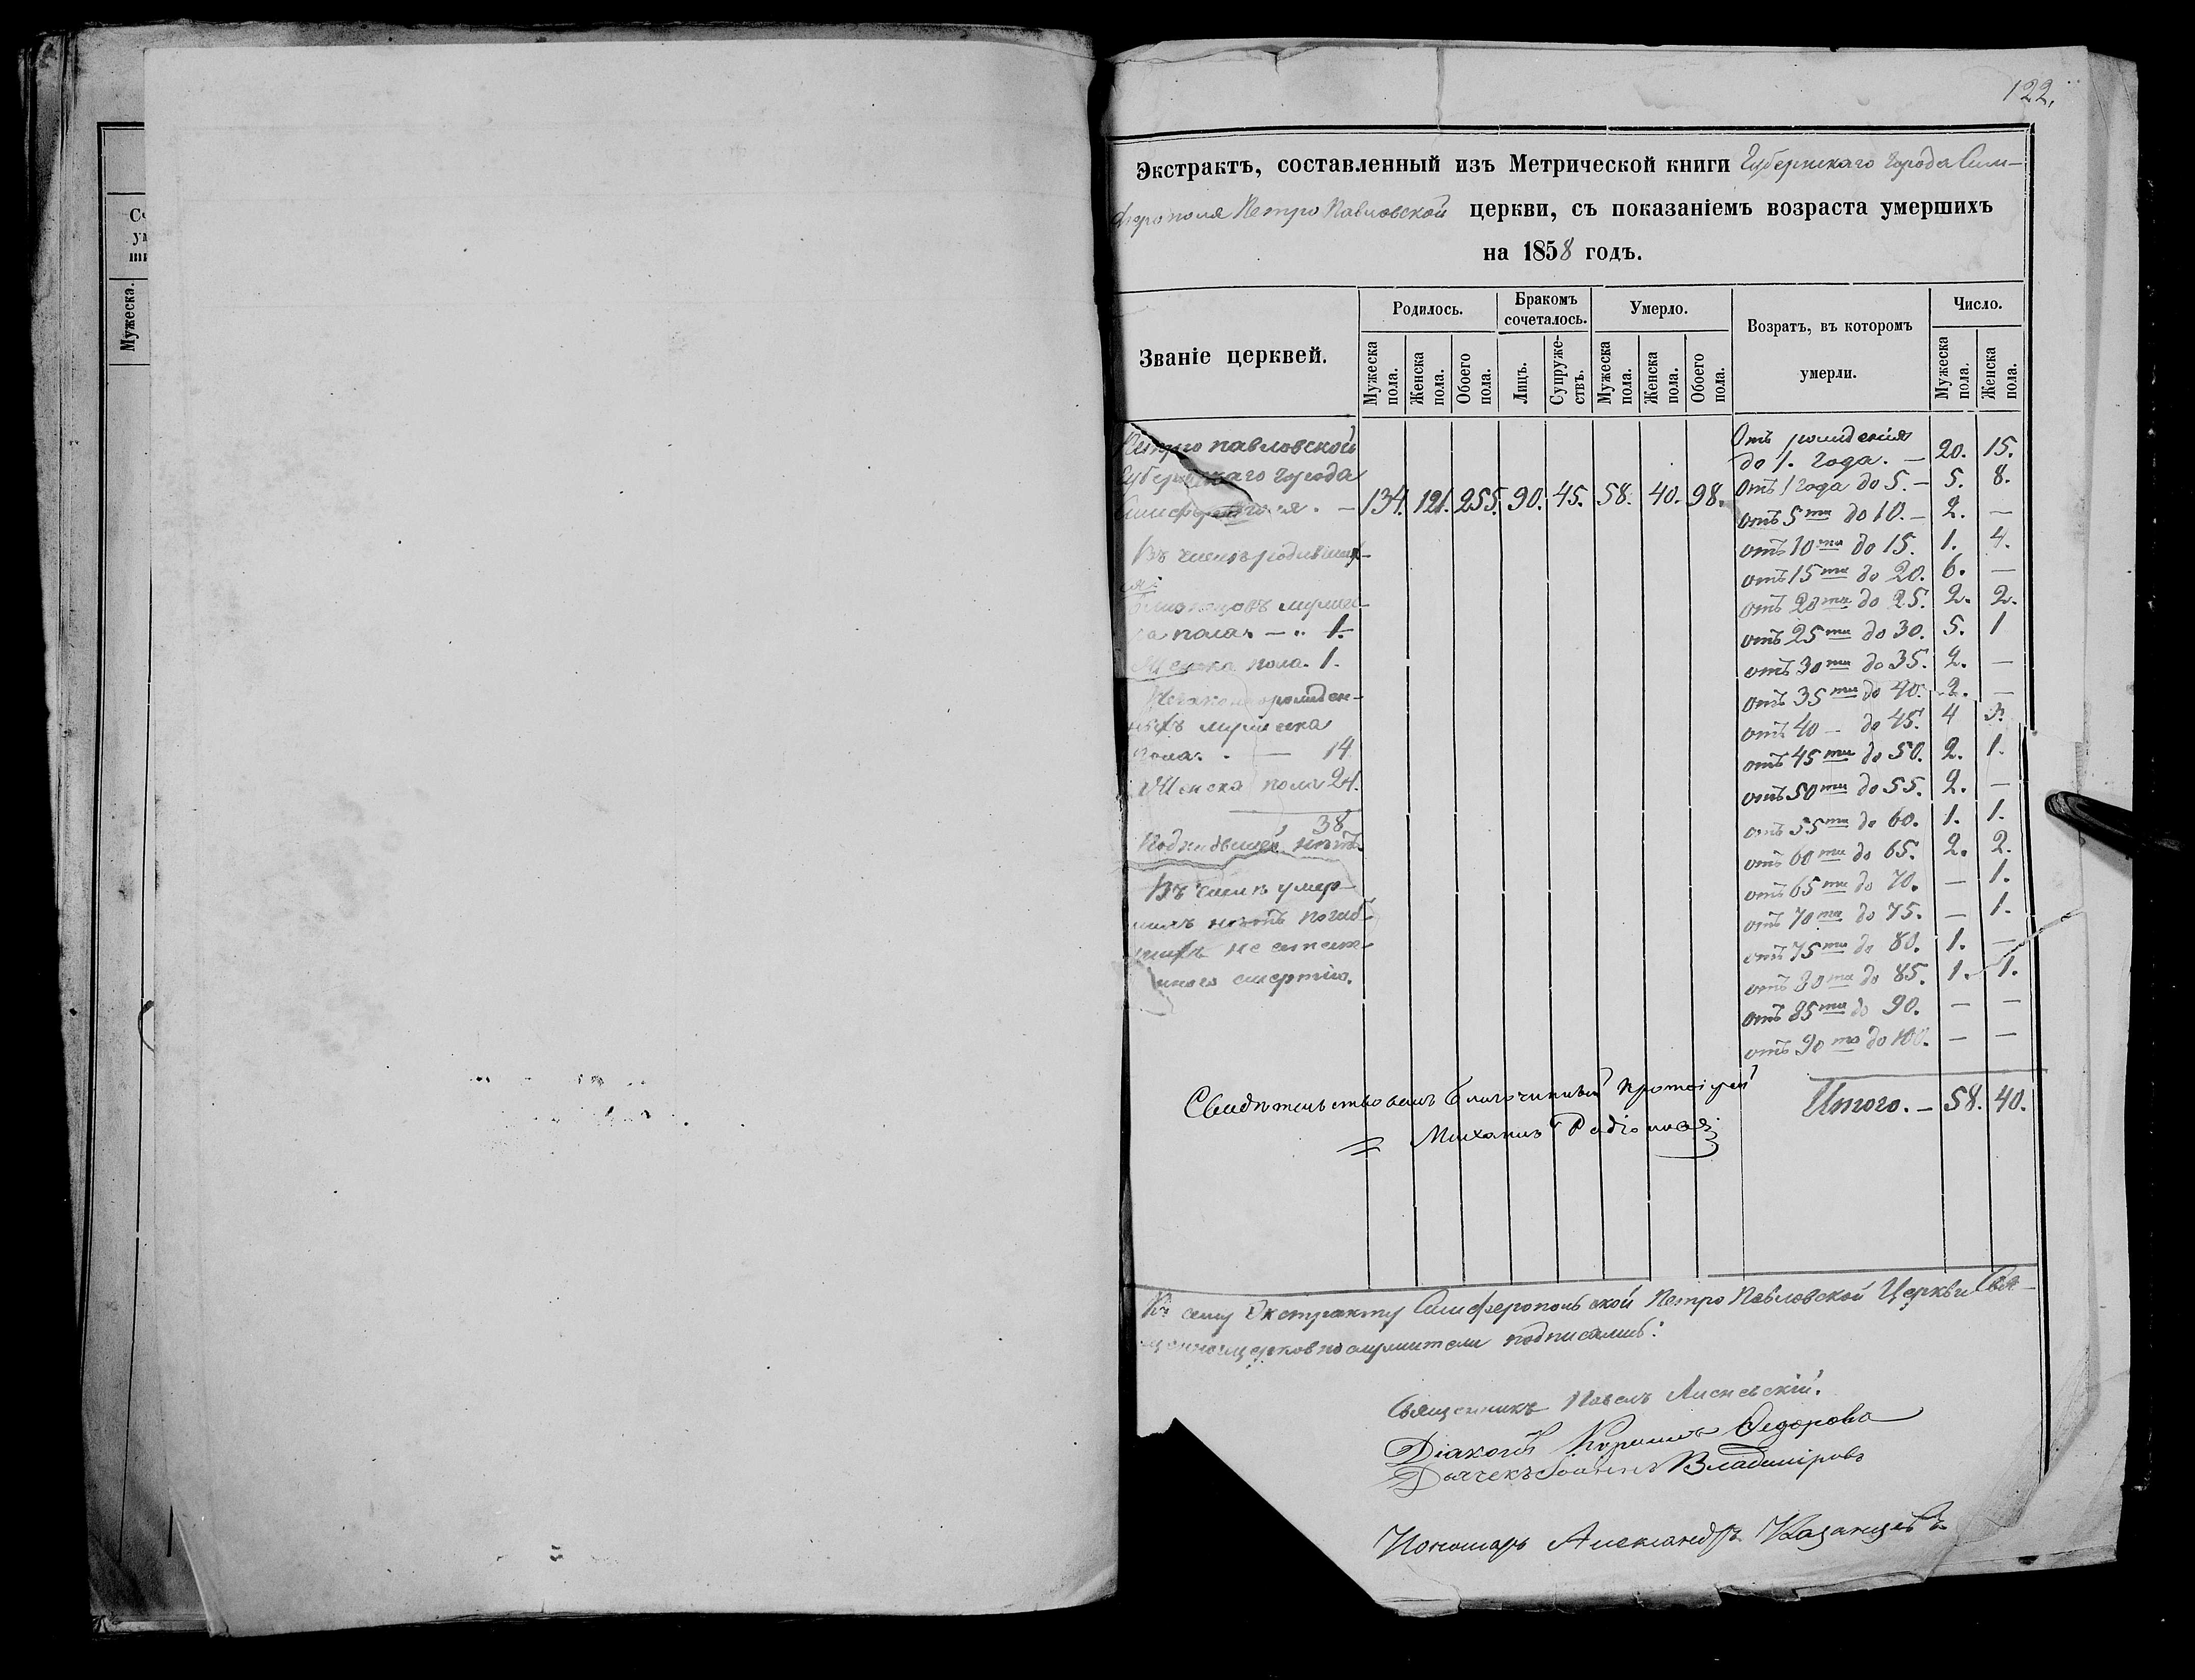 122.
Экстрактъ, составленный изъ Метрической книги Губернскаго города Сим-
ферополя Петро Павловской церкви, съ показаніемъ возраста умершихъ
на 1858 годъ.
Званіе церквей.
Родилось.
Бракомъ сочеталось.
Умерло.
Возратъ, въ которомъ умерли.
Число.
Мужеска пола.
Женска пола.
Обоего пола.
Лицъ.
Супруже-ствъ.
Мужеска пола.
Женска пола.
Обоего пола.
Мужеска пола.
Женска пола.
Петро павловской
Губернскаго города
Симферополя. — 134. 121. 255. 90. 45. 58. 40. 98.
Въ числѣ родивших-
ся:
близнецовъ мужес-
ка пола. — „ 1.
Женска пола. 1.
Незаконнорожден-
ныхъ мужеска
пола. — 14
Женска пола 24.
38
Подкидышей нѣтъ.
Въ числѣ умер-
шихъ нѣтъ погиб-
шихъ не естест-
нною смертію.
Отъ рожденія
до 1. года. — 20. 15.
Отъ 1 года до 5. — 5. 8.
отъ 5ти до 10. — 2. —
отъ 10ти до 15. 1. 4.
отъ 15ти до 20. 6. —
отъ 20ти до 25. 2. 2.
отъ 25ти до 30. 5. 1
отъ 30ти до 35. 2. —
отъ 35ти до 40. 2. —
отъ 40 — до 45. 4 3.
отъ 45ти до 50. 2. 1.
отъ 50ти до 55. 2. —
отъ 55ти до 60. 1. 1.
отъ 60ти до 65. 2. 2.
отъ 65ти до 70. — 1.
отъ 70ти до 75. — 1.
отъ 75ти до 80. 1. —
отъ 80ти до 85. 1. 1.
отъ 85ти до 90. — —
отъ 90то до 100. — —
Итого. — 58. 40.
Свидѣтельствовалъ благочинный протоіерей
Михаилъ Родіоновъ
Къ сему Экстракту Симферопольской Петро Павловской Церкви Свя-
щенноцерковнослужители подписались:
Священникъ Павелъ Лисневскій.
Діаконъ Федорова
Дьячекъ Іоаннъ Владиміровъ
Пономарь Александръ Казанцевъ
С
у
ш
Мужеска.